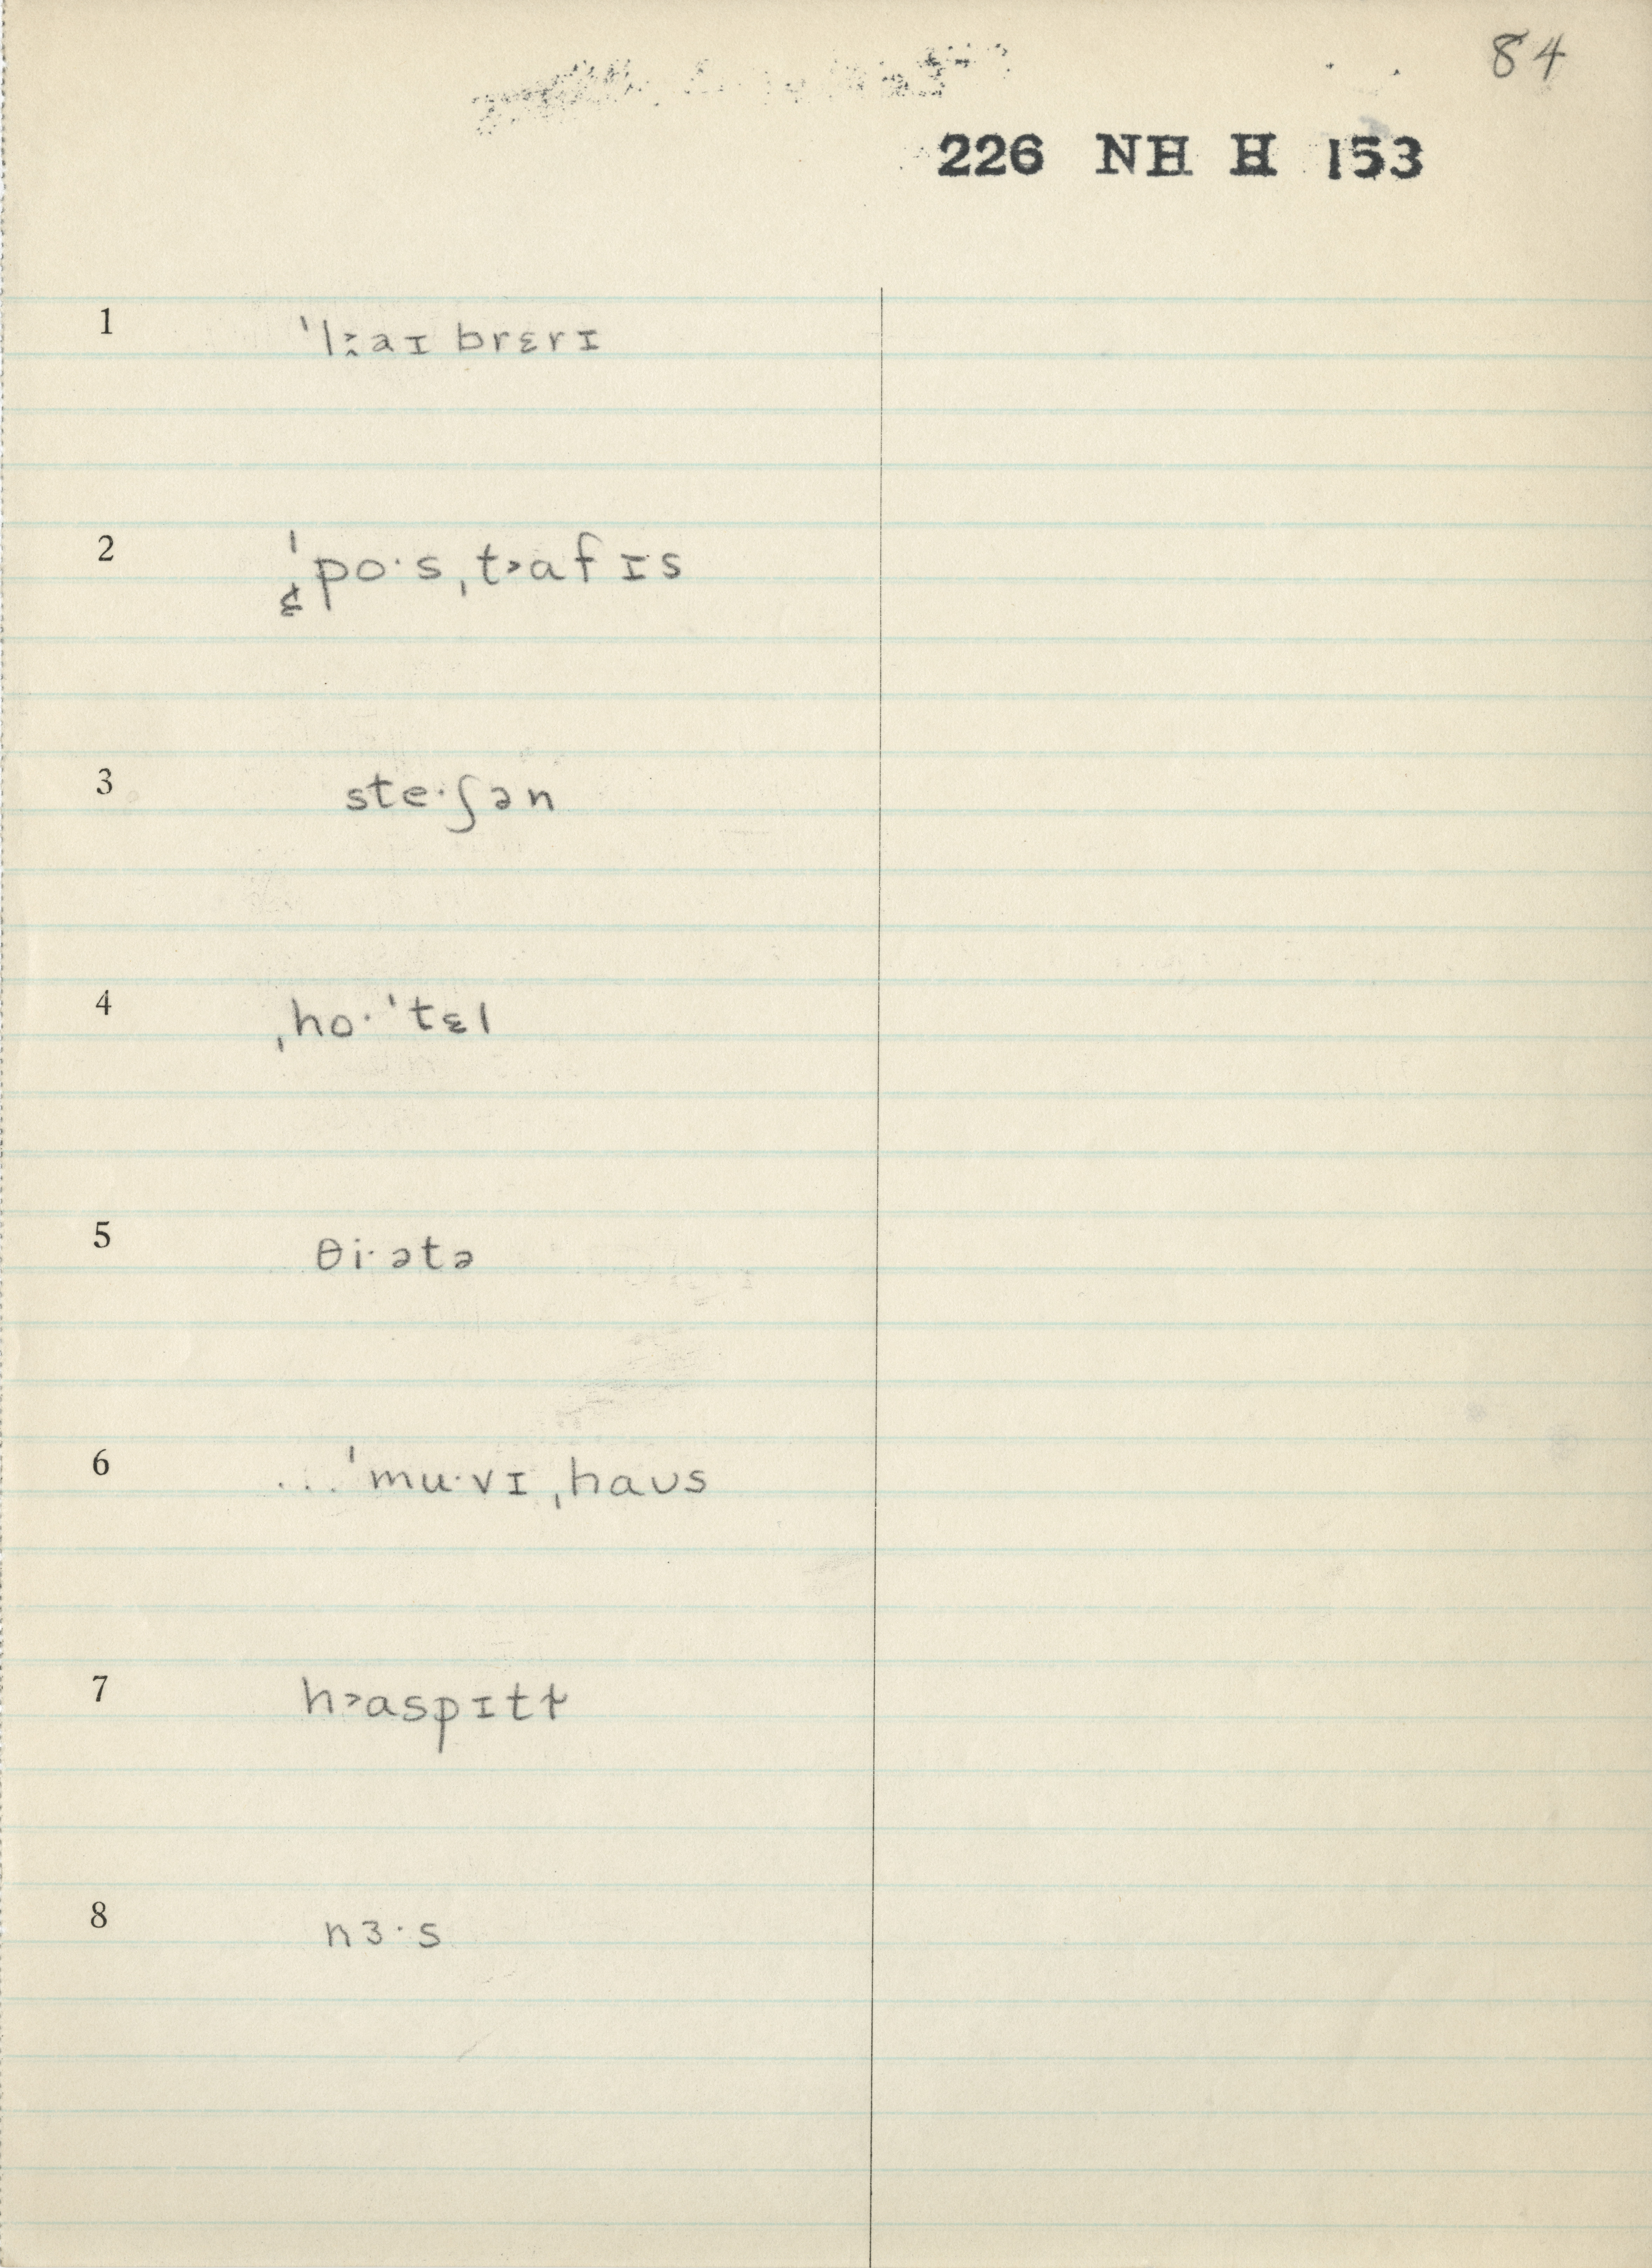 84
226 NH H 153
1 ˈl˰˃aɪ brɛrɪ
2 ¢ ˈpo·s ˌt˃af ɪs
3 ste·ʃən
4 ˌho·ˈtɛl
5 θi·ətə
6 ...ˈmu·vɪ ˌhaʊs
7 h˃aspɪtɫ
8 nɜ·s